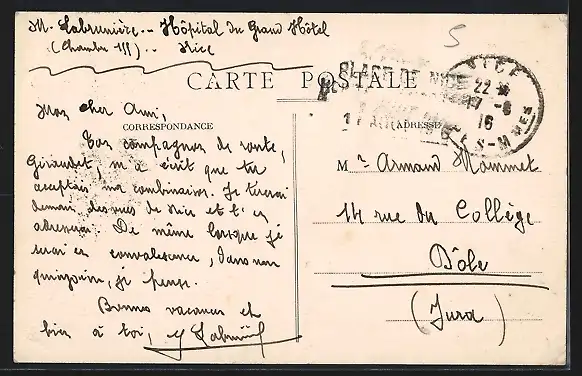 M. Labrunière -- Hôpital du Grand Hôtel
(Chambre 111) -- Nice
5
CARTE POSTALE
PLACE DE NICE
NICE
22
17 - 8
16
ALPES-M MES
CORRESPONDANCE
(ADRESSE)
Mon cher Ami,
Ton compagnon de route,
Giraudet, m'a écrit que tu
acceptais ma combinaison. Je t'enverrai
demain des vues de Nice et t'en
adresserai. De même lorsque je
serai en convalescence, dans une
quinzaine, je pense.
Bonnes vacances et
bien à toi, Labrunière
Mr Armand Mommet
14 rue du Collège
Dôle
(Jura)